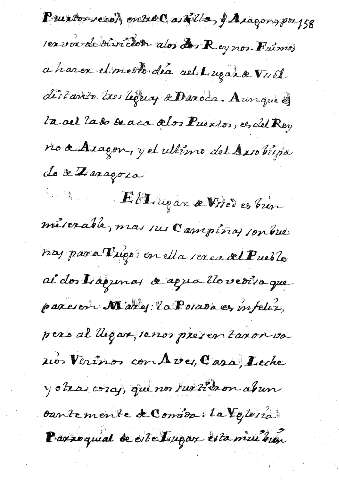 Puerto seco, entre Castilla, y Aragon, por 158
servir de division a los dos Reynos. Fuimos
a hacer el medio dia al Lugar de Used
distante tres leguas de Daroca. Aunque es
ta al lado de aca de los Puertos, es del Rey
no de Aragon, y el ultimo del Arzobispa
do de Zaragoza
El Lugar de Used es bien
miserable, mas sus Campiñas son bue
nas para Trigo: en ella cerca del Pueblo
ai dos Lagunas de agua llovediza que
parecen Mares: la Posada es infeliz,
pero al llegar, se nos presentaron va
rios Vecinos con Aves, Caza, Leche
y otras cosas, que nos surtieron abun
dantemente de Comida: la Yglesia
Parroquial de este Lugar esta mui bien